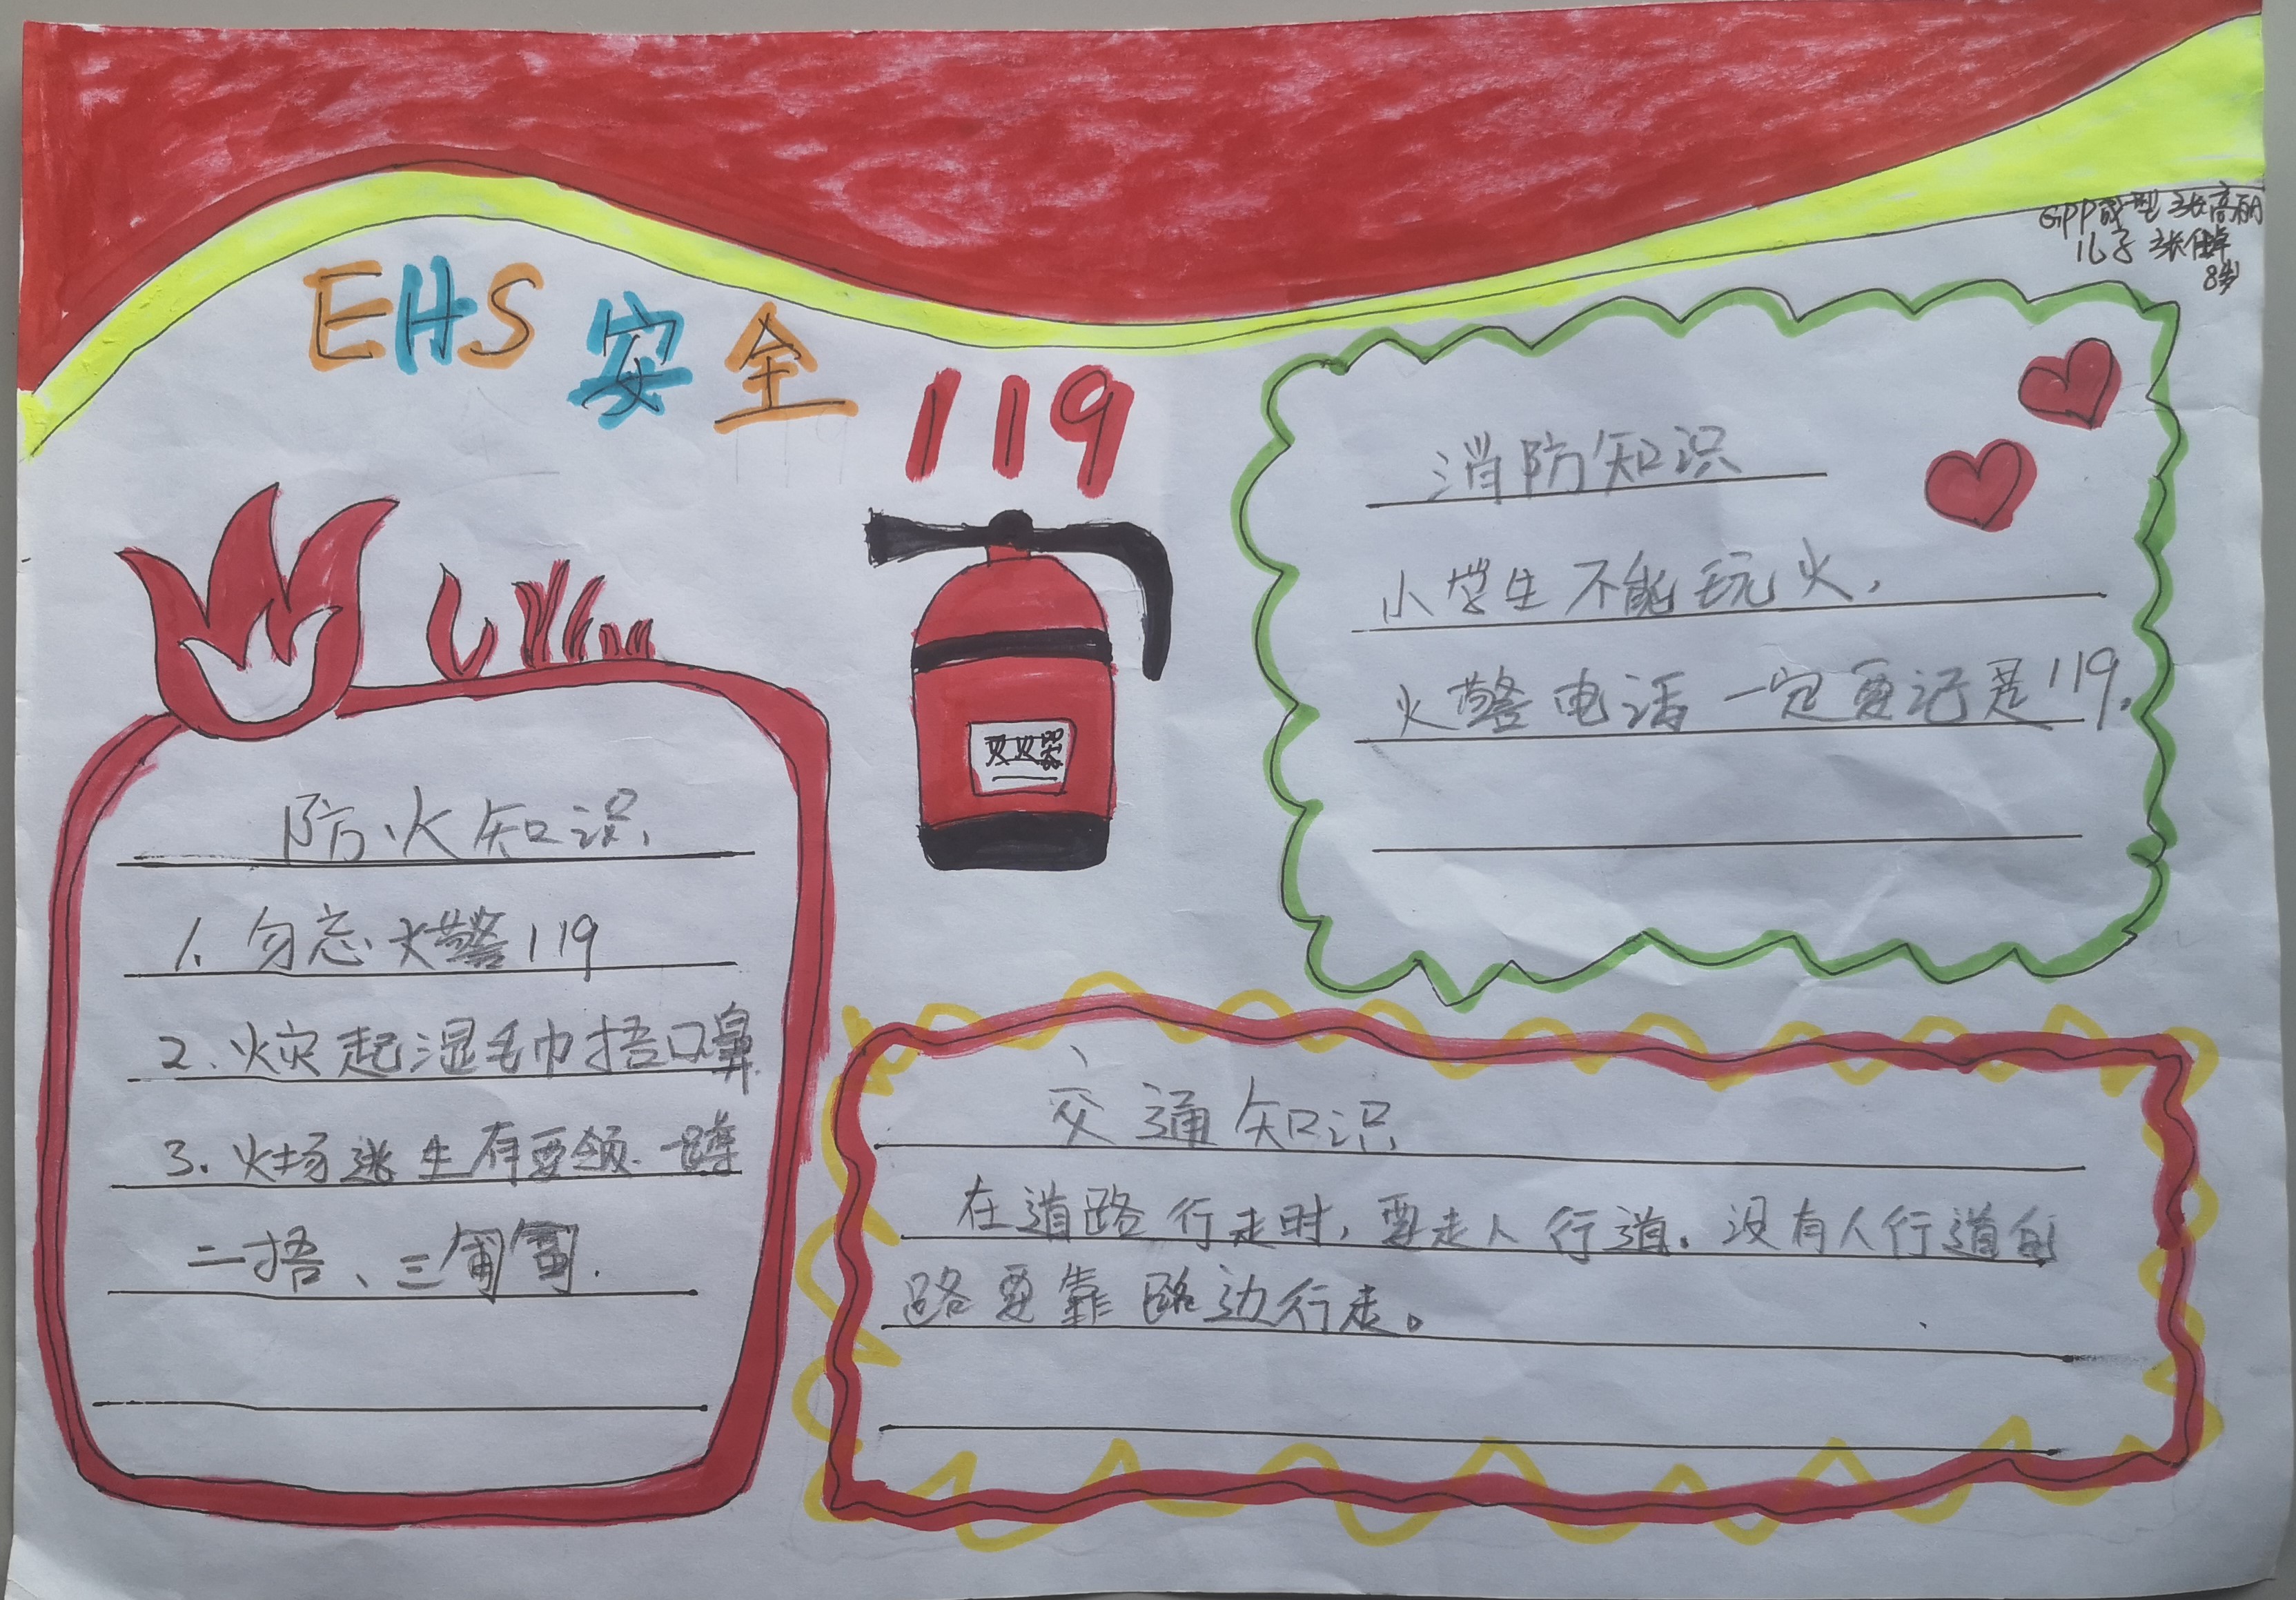 GPP成型 张高丽
儿子 张倬
8岁
EHS安全
119
灭火器
消防知识
小学生不能玩火.
火警电话一定要记是119.
防火知识.
1.勿忘火警119
2.火灾起湿毛巾捂口鼻
3.火场逃生有要领.一蹲
二捂、三匍匐.
交通知识
在道路行走时,要走人行道.没有人行道的
路要靠路边行走。